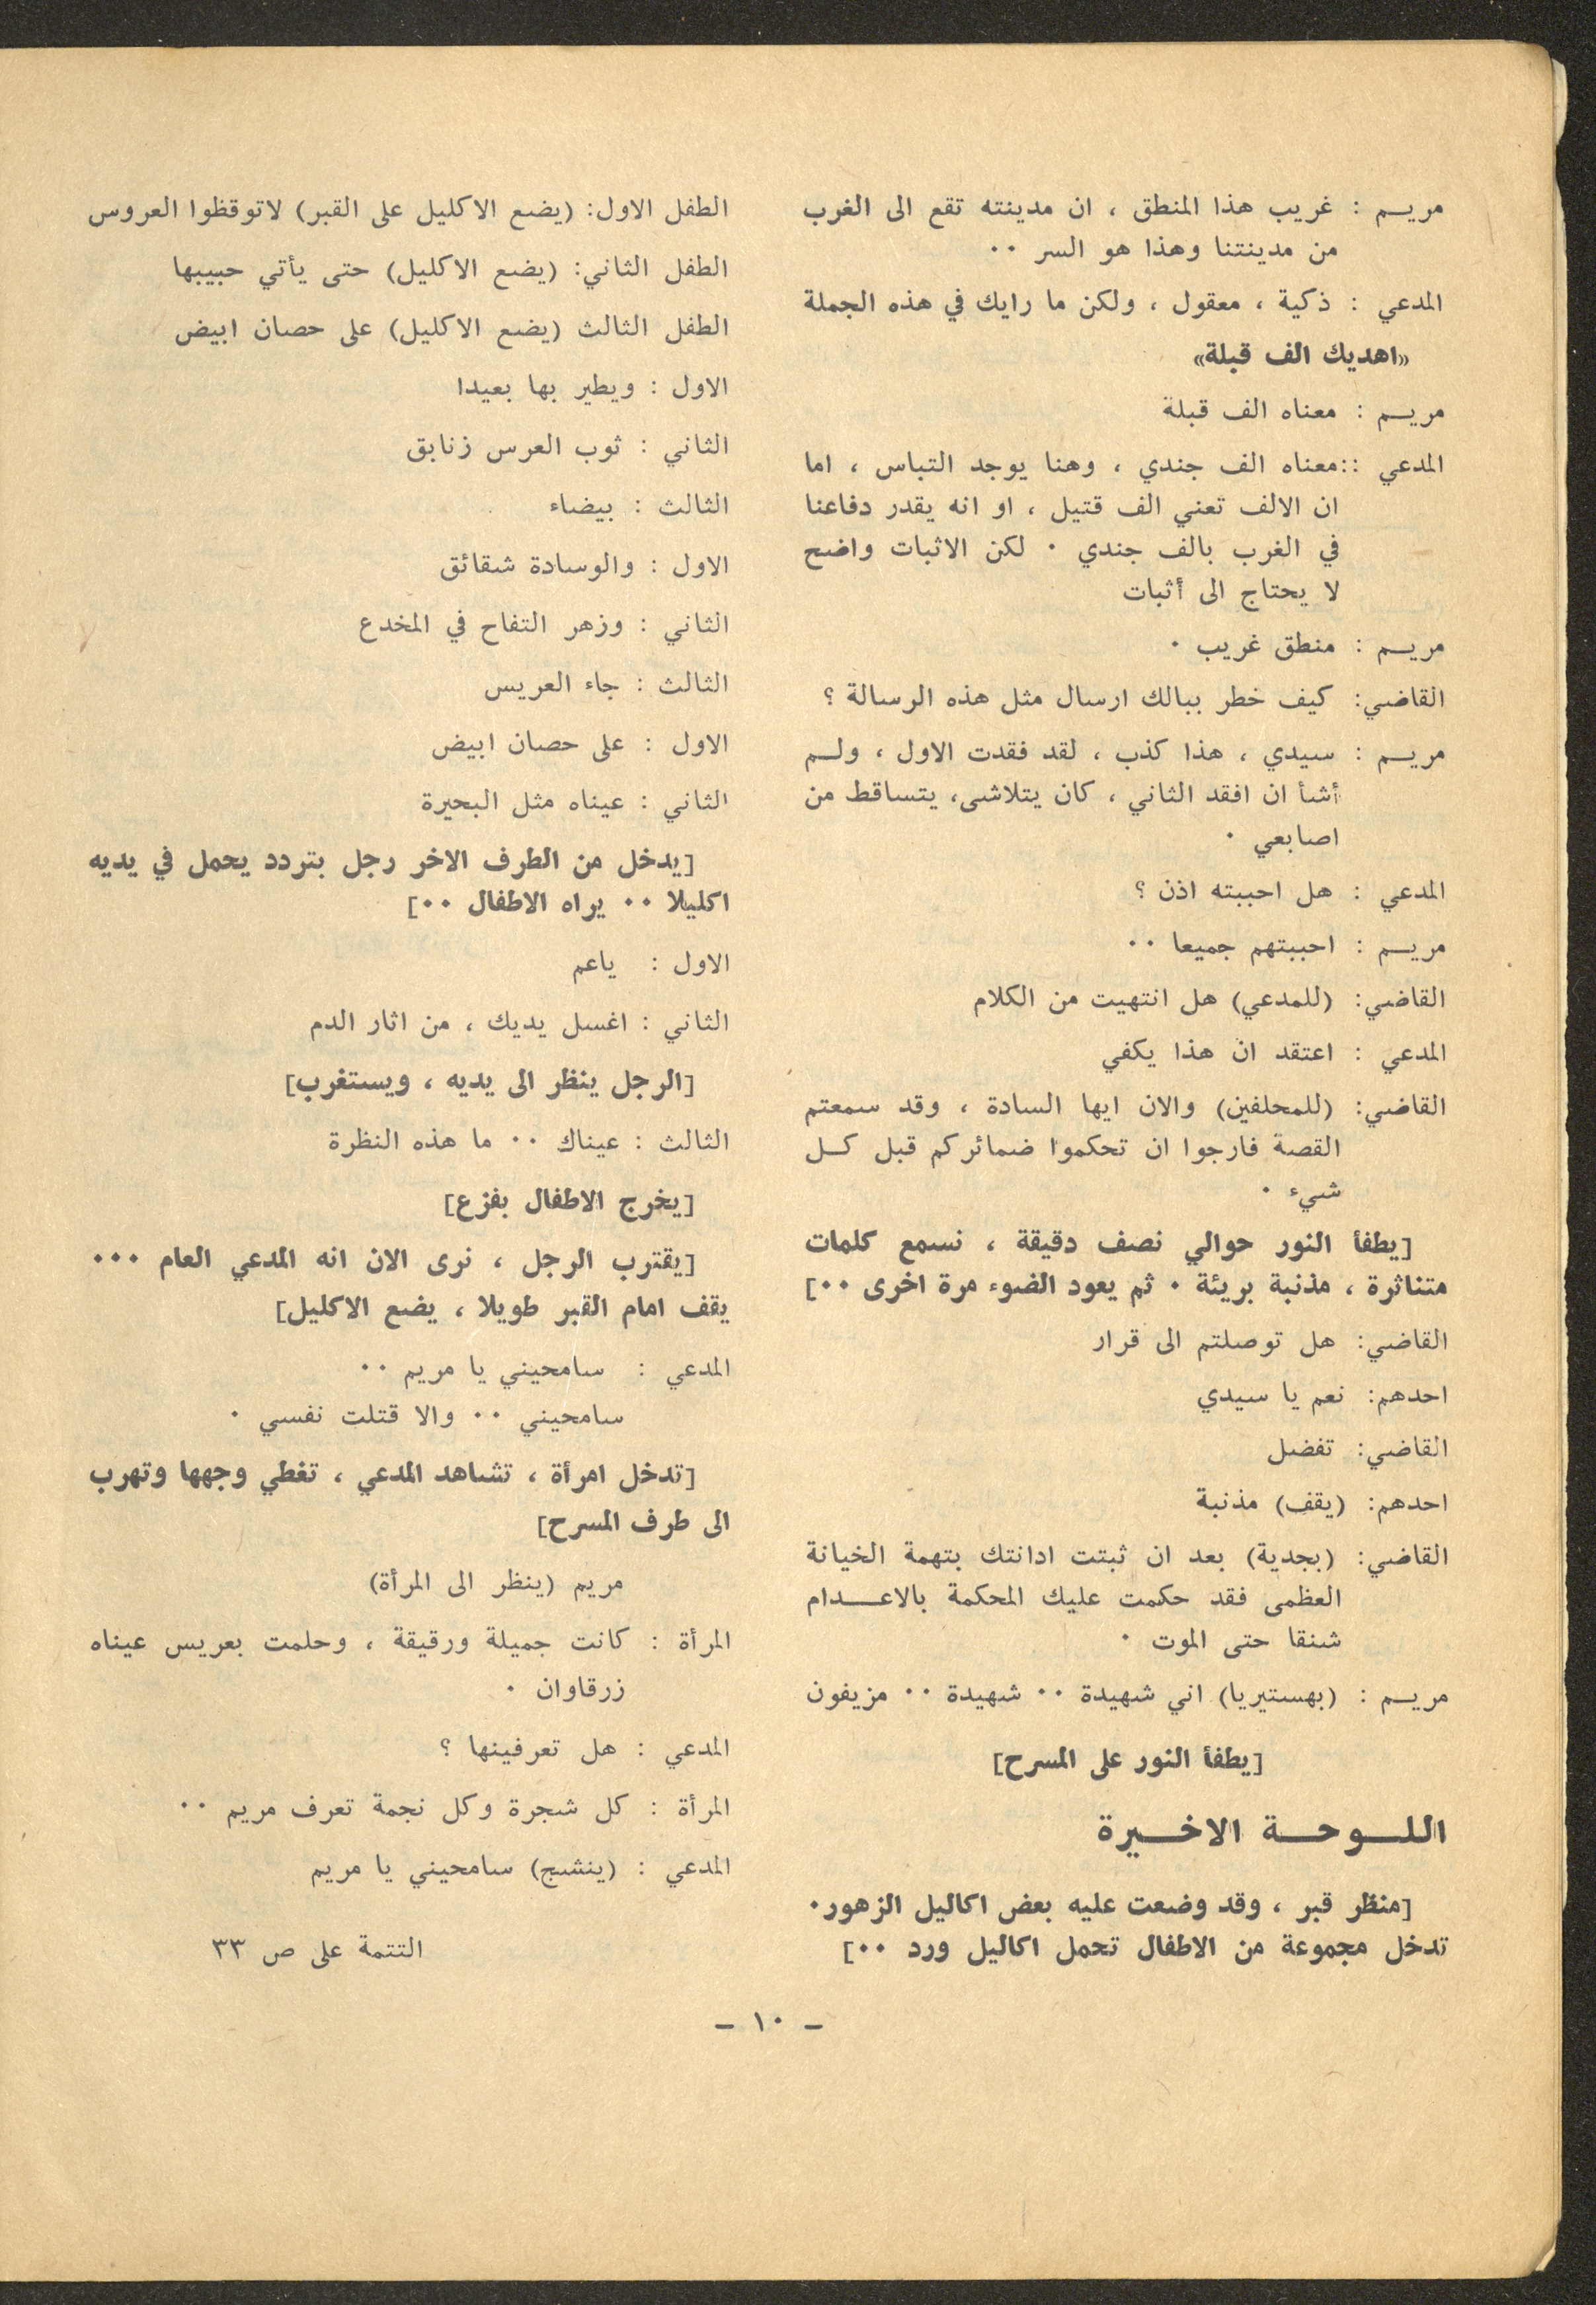 مريــم : غريب هذا المنطق ، ان مدينته تقع الى الغرب
من مدينتنا وهذا هو السر ٠٠
المدعي : ذكية ، معقول ، ولكن ما رايك في هذه الجملة
«اهديك الف قبلة»
مريــم : معناه الف قبلة
المدعي ::معناه الف جندي ، وهنا يوجد التباس ، اما
ان الالف تعني الف قتيل ، او انه يقدر دفاعنا
في الغرب بالف جندي ٠ لكن الاثبات واضح
لا يحتاج الى أثبات
مريــم : منطق غريب ٠
القاضي: كيف خطر ببالك ارسال مثل هذه الرسالة ؟
مريــم : سيدي ، هذا كذب ، لقد فقدت الاول ، ولــم
أشأ ان افقد الثاني ، كان يتلاشى، يتساقط من
اصابعي ٠
المدعي : هل احببته اذن ؟
مريــم : احببتهم جميعا ٠٠
القاضي: (للمدعي) هل انتهيت من الكلام
المدعي : اعتقد ان هذا يكفي
القاضي: (للمحلفين) والان ايها السادة ، وقد سمعتم
القصة فارجوا ان تحكموا ضمائركم قبل كــل
شيء ٠
[يطفأ النور حوالي نصف دقيقة ، نسمع كلمات
متناثرة ، مذنبة بريئة ٠ ثم يعود الضوء مرة اخرى ٠٠]
القاضي: هل توصلتم الى قرار
احدهم: نعم يا سيدي
القاضي: تفضل
احدهم: (يقف) مذنبة
القاضي: (بجدية) بعد ان ثبتت ادانتك بتهمة الخيانة
العظمى فقد حكمت عليك المحكمة بالاعــدام
شنقا حتى الموت ٠
مريــم : (بهستيريا) اني شهيدة ٠٠ شهيدة ٠٠ مزيفون
[يطفأ النور على المسرح]
اللــوحــة الاخــيرة
[منظر قبر ، وقد وضعت عليه بعض اكاليل الزهور٠
تدخل مجموعة من الاطفال تحمل اكاليل ورد ٠٠]
الطفل الاول: (يضع الاكليل على القبر) لاتوقظوا العروس
الطفل الثاني: (يضع الاكليل) حتى يأتي حبيبها
الطفل الثالث (يضع الاكليل) على حصان ابيض
الاول : ويطير بها بعيدا
الثاني : ثوب العرس زنابق
الثالث : بيضاء
الاول : والوسادة شقائق
الثاني : وزهر التفاح في المخدع
الثالث : جاء العريس
الاول : على حصان ابيض
الثاني : عيناه مثل البحيرة
[يدخل من الطرف الاخر رجل بتردد يحمل في يديه
اكليلا ٠٠ يراه الاطفال ٠٠]
الاول : ياعم
الثاني : اغسل يديك ، من اثار الدم
[الرجل ينظر الى يديه ، ويستغرب]
الثالث : عيناك ٠٠ ما هذه النظرة
[يخرج الاطفال بفزع]
[يقترب الرجل ، نرى الان انه المدعي العام ٠٠٠
يقف امام القبر طويلا ، يضع الاكليل]
المدعي : سامحيني يا مريم ٠٠
سامحيني ٠٠ والا قتلت نفسي ٠
[تدخل امرأة ، تشاهد المدعي ، تغطي وجهها وتهرب
الى طرف المسرح]
مريم (ينظر الى المرأة)
المرأة : كانت جميلة ورقيقة ، وحلمت بعريس عيناه
زرقاوان ٠
المدعي : هل تعرفينها ؟
المرأة : كل شجرة وكل نجمة تعرف مريم ٠٠
المدعي : (ينشج) سامحيني يا مريم
التتمة على ص ٣٣
– ١٠ –